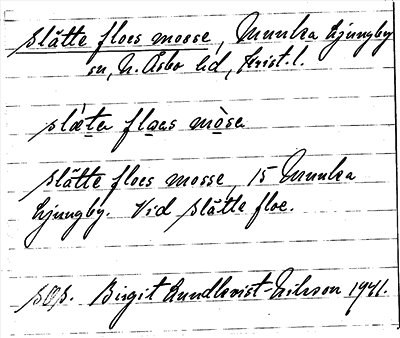 slätte floes mosse, Munka Ljungby
sn, N. Åsbo hd, Krist. l.
slæ̀ta flaas mòsa
Slätte floes mosse, 15 Munka
Ljungby. Vid Slätte floe.
Birgit Rundkvist-Nilsson 1941.